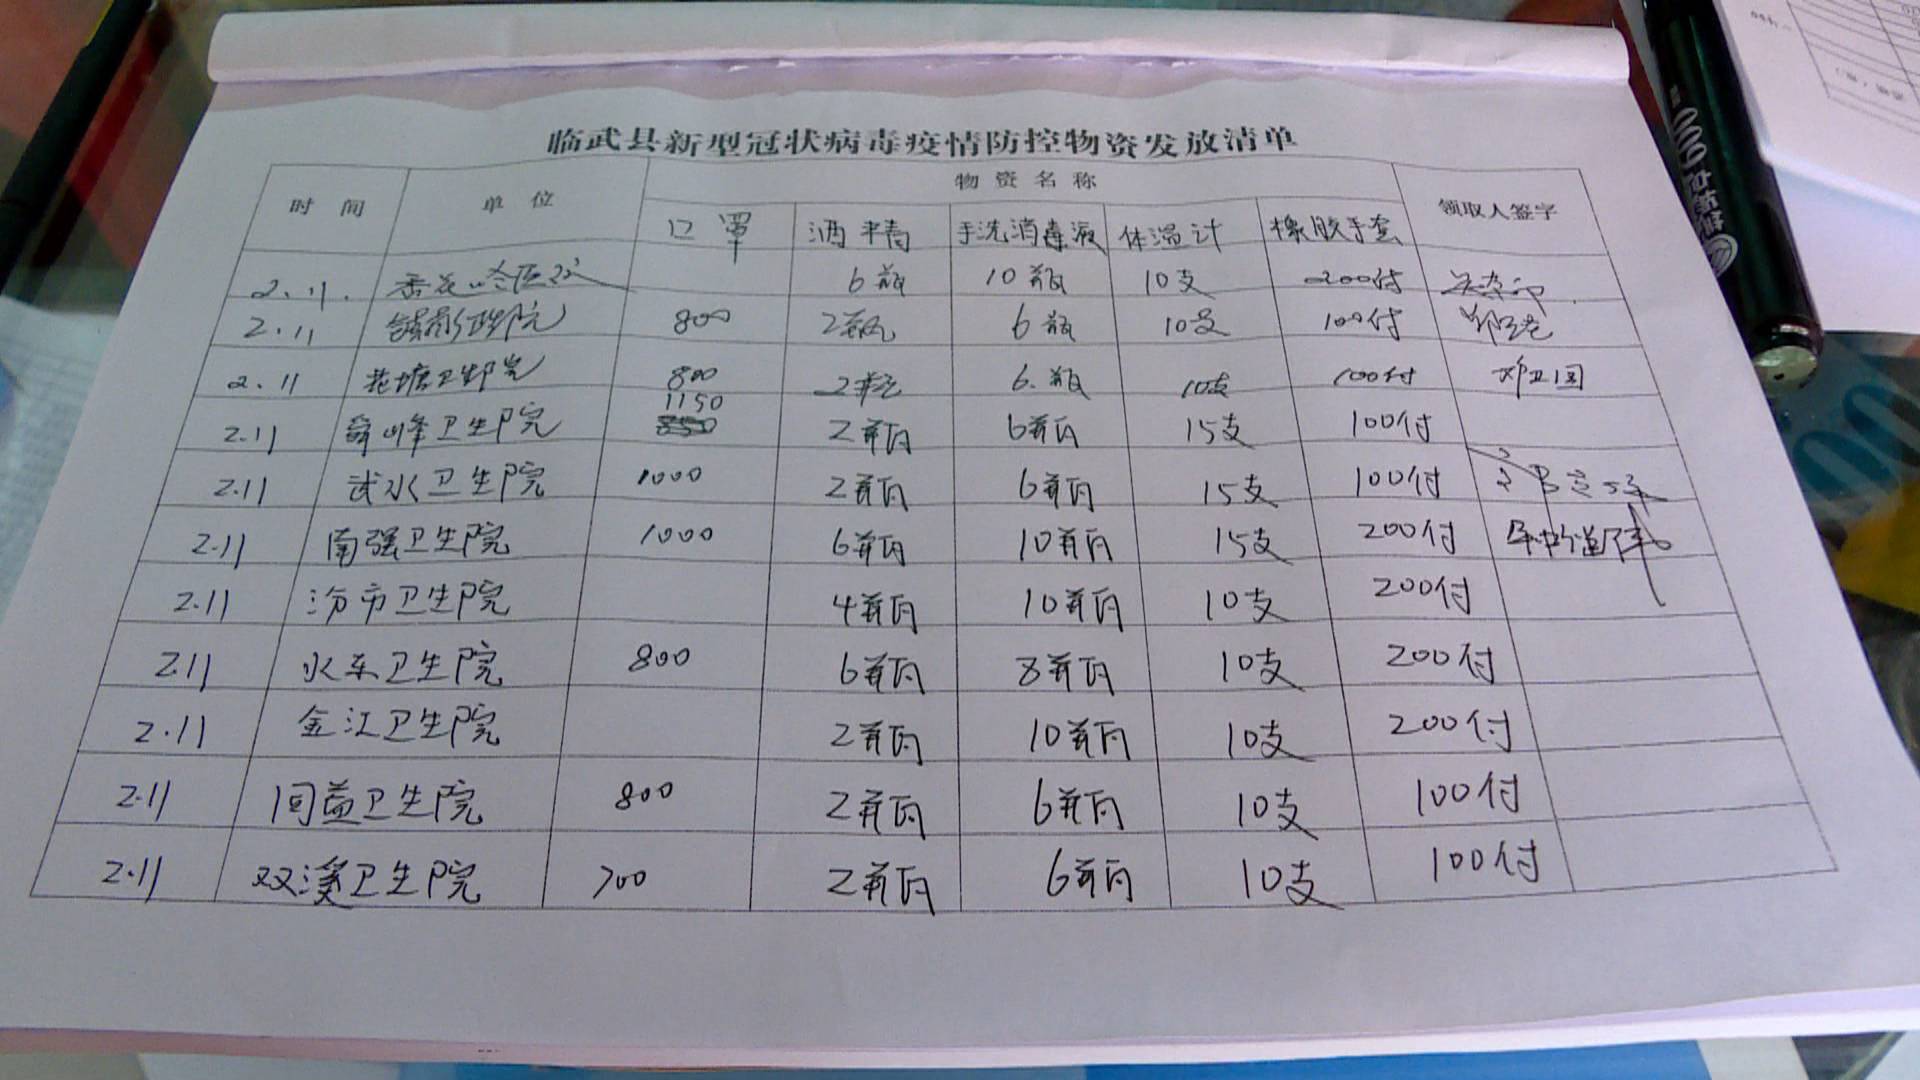 临武县新型冠状病毒疫情防控物资发放清单
时 间 单 位 物 资 名 称 领取人签字
口 罩 酒 精 手洗消毒液 体温计 橡胶手套
2.11. 6瓶 10瓶 10支 200付
2.11 镇南卫生院 800 2瓶 6瓶 10支 100付
2.11 花塘卫生院 800 2瓶 6.瓶 10支 100付 邓卫国
2.11 舜峰卫生院 1150 2瓶 6瓶 15支 100付
2.11 武水卫生院 1000 2瓶 6瓶 15支 100付
2.11 南强卫生院 1000 6瓶 10瓶 15支 200付
2.11 汾市卫生院 4瓶 10瓶 10支 200付
2.11 水东卫生院 800 6瓶 8瓶 10支 200付
2.11 金江卫生院 2瓶 10瓶 10支 200付
2.11 同益卫生院 800 2瓶 6瓶 10支 100付
2.11 双溪卫生院 700 2瓶 6瓶 10支 100付